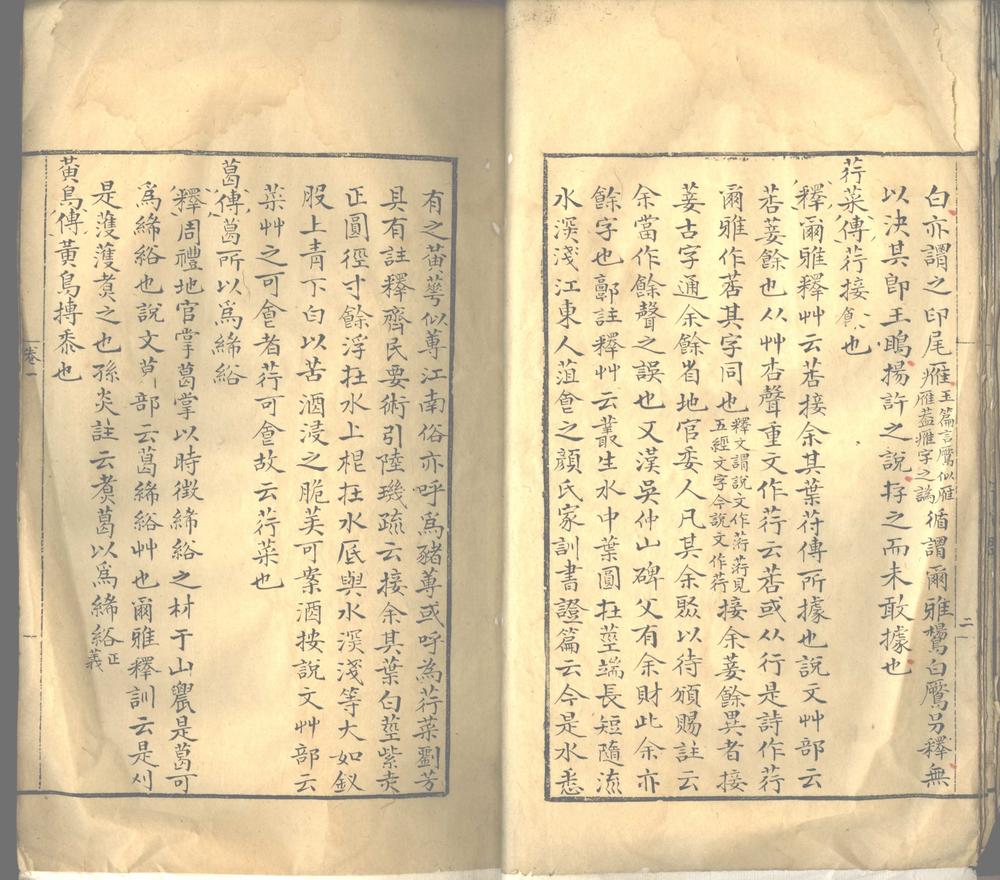 白亦謂之印尾雁玉篇言鷹似雁雁葢雁字之譌循謂爾雅鸉白鷢另釋無
以決其即王鴡揚許之說存之而未敢據也
荇菜傳荇接余也
釋爾雅釋艸云莕接余其葉苻傳所據也說文艸部云
莕菨餘也从艸杏聲重文作荇云莕或从行是詩作荇
爾雅作莕其字同也釋文謂說文作荇荇見五經文字今說文作荇接余菨餘異者接
菨古字通余餘省地官委人凡其余聚以待頒賜註云
余當作餘聲之誤也又漢吳仲山碑父有余財此余亦
餘字也郭註釋艸云叢生水中葉圓在莖端長短隨流
水深淺江東人菹食之顏氏家訓書證篇云今是水悉
有之黃蕚似蓴江南俗亦呼為豬蓴或呼為荇菜劉芳
具有註釋齊民要術引陸璣疏云接余其葉白莖紫赤
正圓徑寸餘浮在水上棍在水底與水深淺等大如釵
股上青下白以苦酒浸之脆美可案酒按說文艸部云
菜艸之可食者荇可食故云荇菜也
葛傳葛所以為絺綌
釋周禮地官掌葛掌以時徵絺綌之材于山農是葛可
為絺綌也說文艸部云葛絺綌艸也爾雅釋訓云是刈
是濩濩煮之也孫炎註云煮葛以為絺綌正義
黃鳥傳黃鳥搏黍也
卷一
二